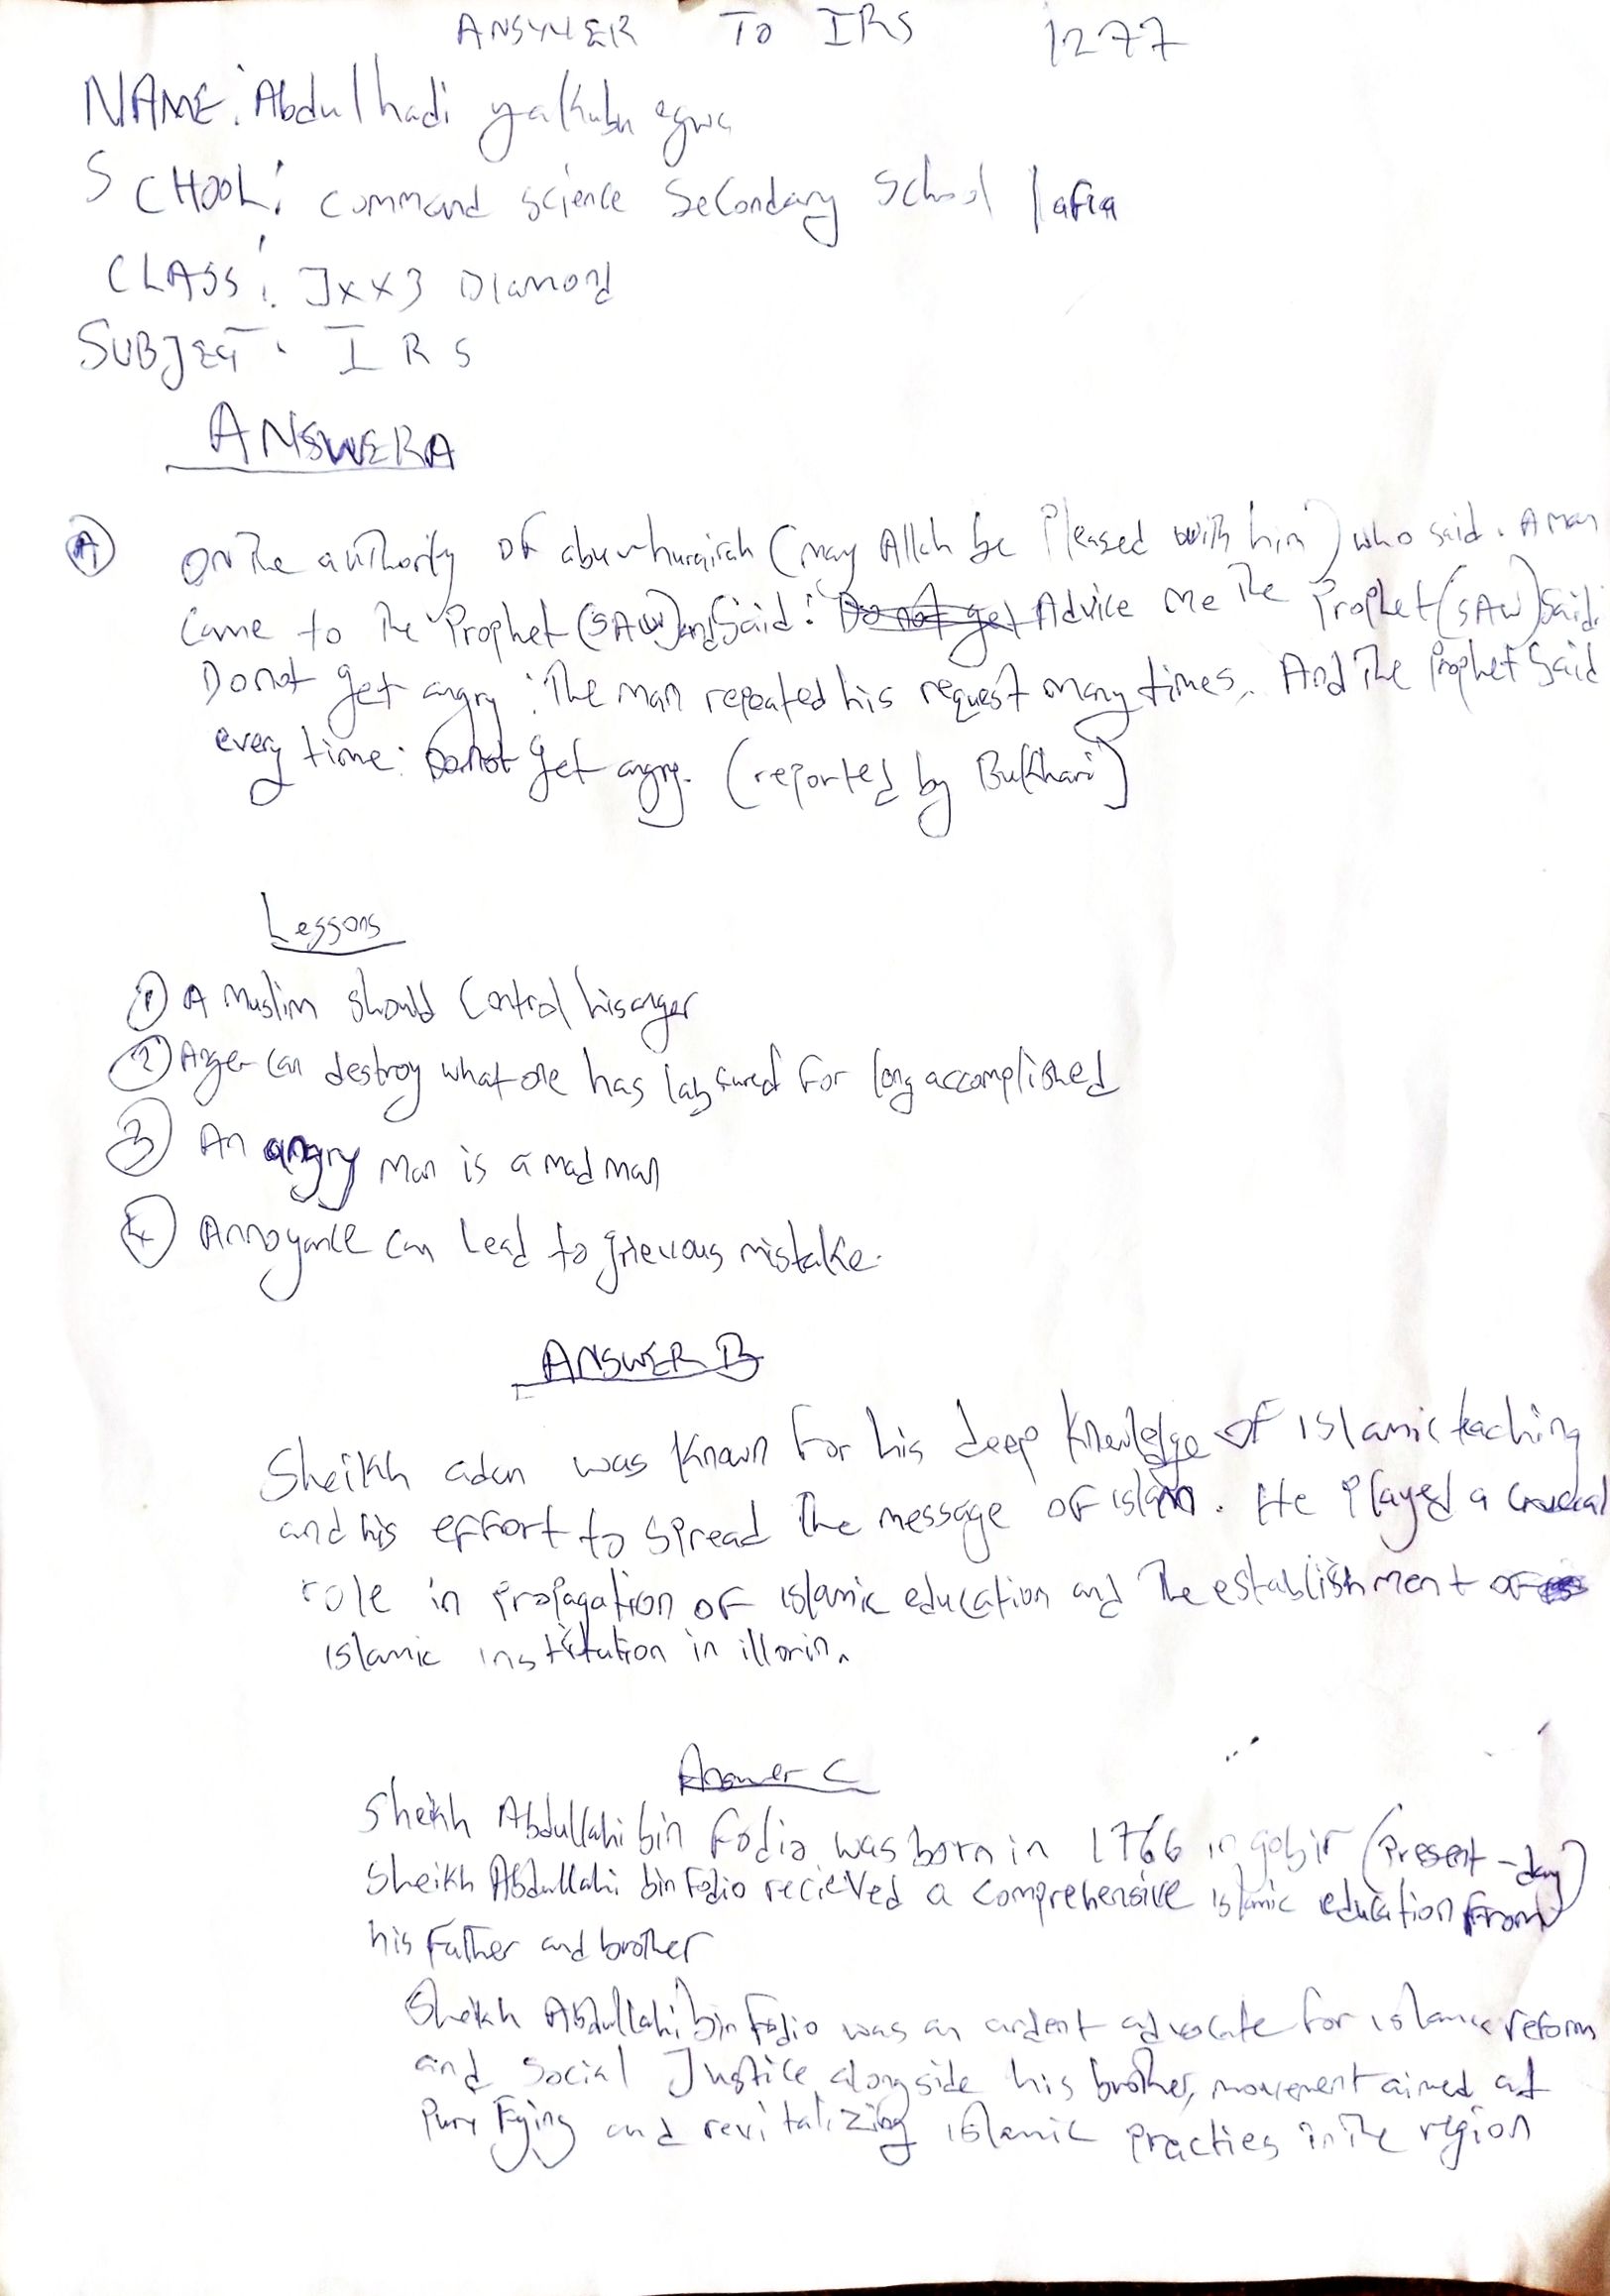 ANSWER TO IRS 1277
NAME: Abdulhadi yakubu egwa
SCHOOL: command science Secondary School lafia
CLASS: Jxx3 Diamond
SUBJECT: IRS
ANSWER A
A On the authority of abu-huraira (may Allah be Pleased with him) who said. A man
came to the Prophet (SAW) and Said: Do not get Advice me the Prophet (SAW) Said:
Do not get angry: The man repeated his request many times. And the Prophet Said
every time: Do not get angry. (reported by Bukhari)
Lessons
1 A Muslim should Control his anger
2 Anger can destroy what one has laboured for long accomplished
3 An angry man is a mad man
4 Annoyance can lead to grievous mistake.
ANSWER B
Sheikh adam was Known for his deep Knowledge of islamic teaching
and his effort to spread the message of islam. He Played a crucial
role in propagation of islamic education and the establishment of
islamic institution in illorin.
Answer C
Sheikh Abdullahi bin Fodio was born in 1766 in gobir (Present-day)
Sheikh Abdullahi bin Fodio recieved a comprehensive islamic education From
his Father and brother
Sheikh Abdullahi bin Fodio was an ardent advocate for islamic reform
and Social Justice alongside his brother, movement aimed at
Purifying and revitalizing islamic practies in the region